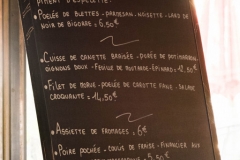 PIMENT D'ESPELETTE.
• POELÉE DE BLETTES - PARMESAN - NOISETTE - LARD DE
NOIR DE BIGORRE = 6.50€
• CUISSE DE CANETTE BRAISÉE - PURÉE DE POTIMARRON
OIGNONS DOUX - FEUILLE DE MOUTARDE - ÉPINARD = 12.50€
• FILET DE MORUE - POELÉE DE CAROTTE FANE - SALADE
CROQUANTE = 14.50€
• ASSIETTE DE FROMAGES = 6€
• POIRE POCHÉE - COULIS DE FRAISE - FINANCIER AUX
5.50€